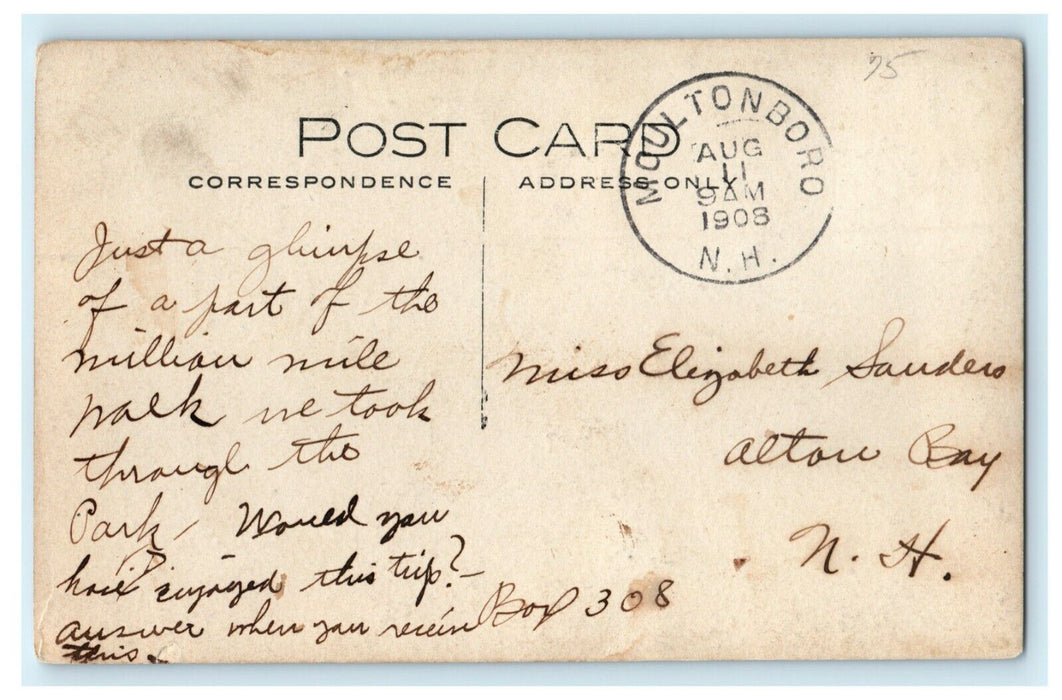 75
POST CARD
CORRESPONDENCE
ADDRESS ONLY
MOULTONBORO
AUG
11
9 AM
1908
N.H.
Just a glimpse
of a part of the
million mile
walk we took
through the
Park / Would you
have enjoyed this trip? –
answer when you receive
this.
Miss Elizabeth Sanders
Alton Bay
N. H.
Box 308